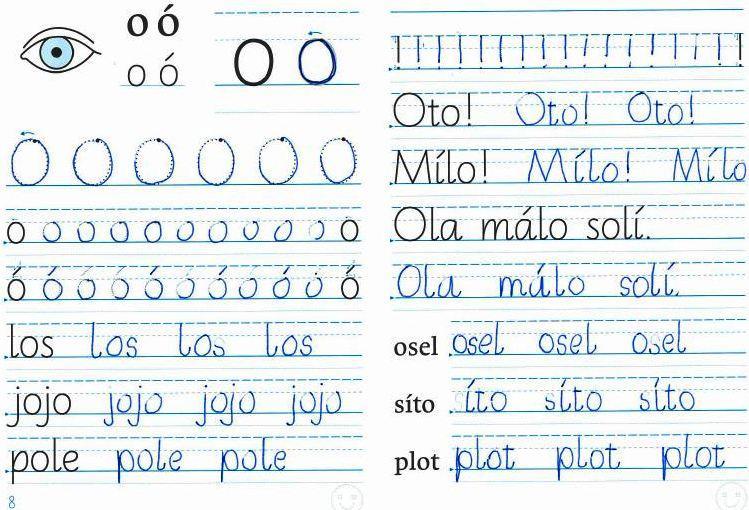 o ó
o ó
O O
O O O O O O
o o o o o o o o o o o
ó ó ó ó ó ó ó ó ó ó ó
los los los los
jojo jojo jojo jojo
pole pole pole
8
! ! ! ! ! ! ! ! ! ! ! ! ! ! ! ! !
Oto! Oto! Oto!
Mílo! Mílo! Mílo
Ola málo solí.
Ola málo solí.
osel osel osel osel
síto síto síto síto
plot plot plot plot